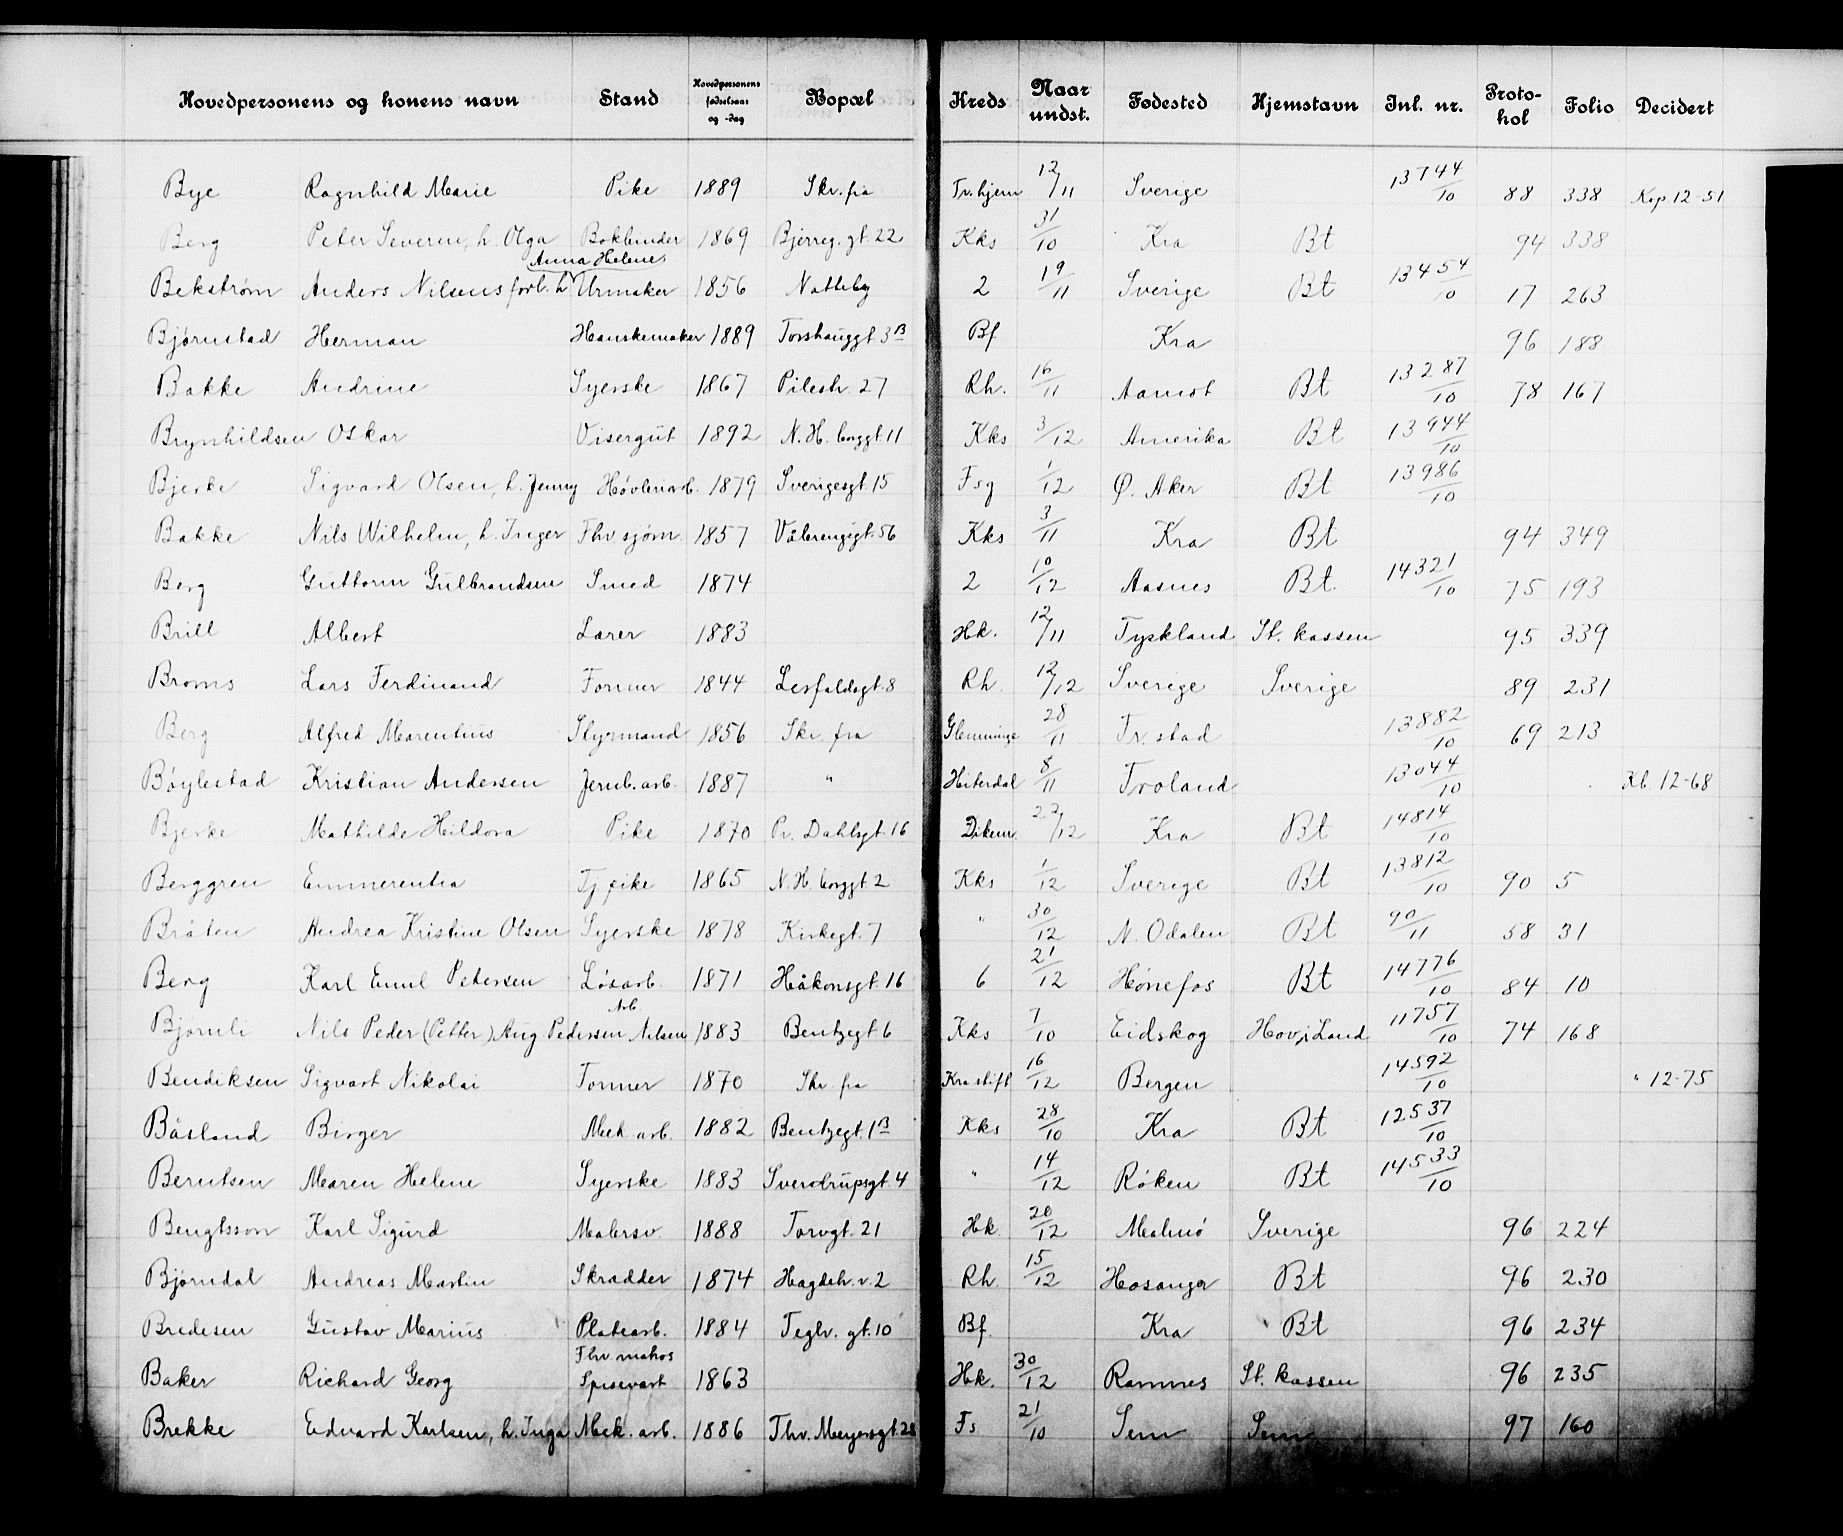 Hovedpersonens og konens navn Stand Hovedpersonens fødselsaar og -dag Bopæl Kreds Naar undst. Fødested Hjemstavn Inl. nr. Protokol Folio Decidert
Bye Ragnhild Marie Pike 1889 Skr. fra Tr.hjem 12/11 Sverige 13744/10 88 338 Kop. 12-51
Berg Peter Severin, h. Olga Bokbinder 1869 Bjerreg. gt. 22 Kks 31/10 Kra Bt 94 338
Anna Helene
Bekstrøm Anders Nilsens forl. h Urmaker 1856 2 19/11 Sverige Bt 13454/10 17 263
Bjørnstad Herman Hanskemaker 1889 Torshauggt. 3B Bf Kra 96 188
Bakke Andrine Syerske 1867 Pilestr. 27 Rh. 16/11 Aamot Bt 13287/10 78 167
Brynhildsen Oskar Visergut 1892 N. H. borggt. 11 Kks 3/12 Amerika Bt 13944/10
Bjerke Sigvard Olsen, h. Jenny Høvleriarb. 1879 Sverigesgt. 15 Fsg 1/12 Ø. Aker Bt 13986/10
Bakke Nils Wilhelm, h. Inger Fhv sjøm. 1857 Vålerengsgt. 56 Kks 3/11 Kra Bt 94 349
Berg Guttorm Gulbrandsen Smed 1874 2 10/12 Aasnes Bt. 14321/10 75 193
Brill Albert Lærer 1883 Hk. 12/11 Tyskland St. kassen 95 339
Broms Lars Ferdinand Former 1844 Lesfaldsgt. 8 Rh. 12/12 Sverige Sverige 89 231
Berg Alfred Marentius Styrmand 1856 Skr. fra Glemminge 28/11 Fr. stad 13882/10 69 213
Bøylestad Kristian Andersen Jernb. arb. 1887 " Hiterdal 8/11 Froland 13044/10 Kb. 12-68
Bjerke Mathilde Hildora Pike 1870 Pr. Dahlsgt. 16 Dikem. 22/12 Kra Bt 14814/10
Berggren Emmerentia Tj pike 1865 N. H. borggt. 2 Kks 1/12 Sverige Bt 13812/10 90 5
Bråten Andrea Kristine Olsen Syerske 1878 Kirkegt. 7 " 30/12 N. Odalen Bt 90/11 58 31
Berg Karl Emil Petersen Løsarb. 1871 Håkonsgt. 16 6 21/12 Hønefos Bt 14776/10 84 10
Arb.
Bjørnli Nils Peder (Petter) Aug Pedersen Nilsen 1883 Bentzegt. 6 Kks 7/10 Eidskog Hov i Land 11757/10 74 168
Bendiksen Sigvart Nikolai Former 1870 Skr. fra Kra stift 16/12 Bergen 14592/10 " 12-75
Båsland Birger Mek. arb. 1882 Bentzegt. 1B Kks 28/10 Kra Bt 12537/10
Berntsen Maren Helene Syerske 1883 Sverdrupsgt. 4 " 14/12 Røken Bt 14533/10
Bengtsson Karl Sigurd Malersv. 1888 Torvgt. 21 Hk. 20/12 Malmö Sverige 96 224
Bjørndal Andreas Martin Skrædder 1874 Hagdeh. v. 2 Rh. 15/12 Hosanger Bt 96 230
Bredesen Gustav Marius Platearb. 1884 Teglv. gt. 10 Bf. Kra Bt 96 234
Fhv. matros
Baker Richard Georg Spisevert 1863 Hk. 30/12 Ramnes St. kassen 96 235
Brekke Edvard Karlsen, h. Inga Mek. arb. 1886 Thv. Meyersgt. 28 Fs 21/10 Sem Sem 97 160